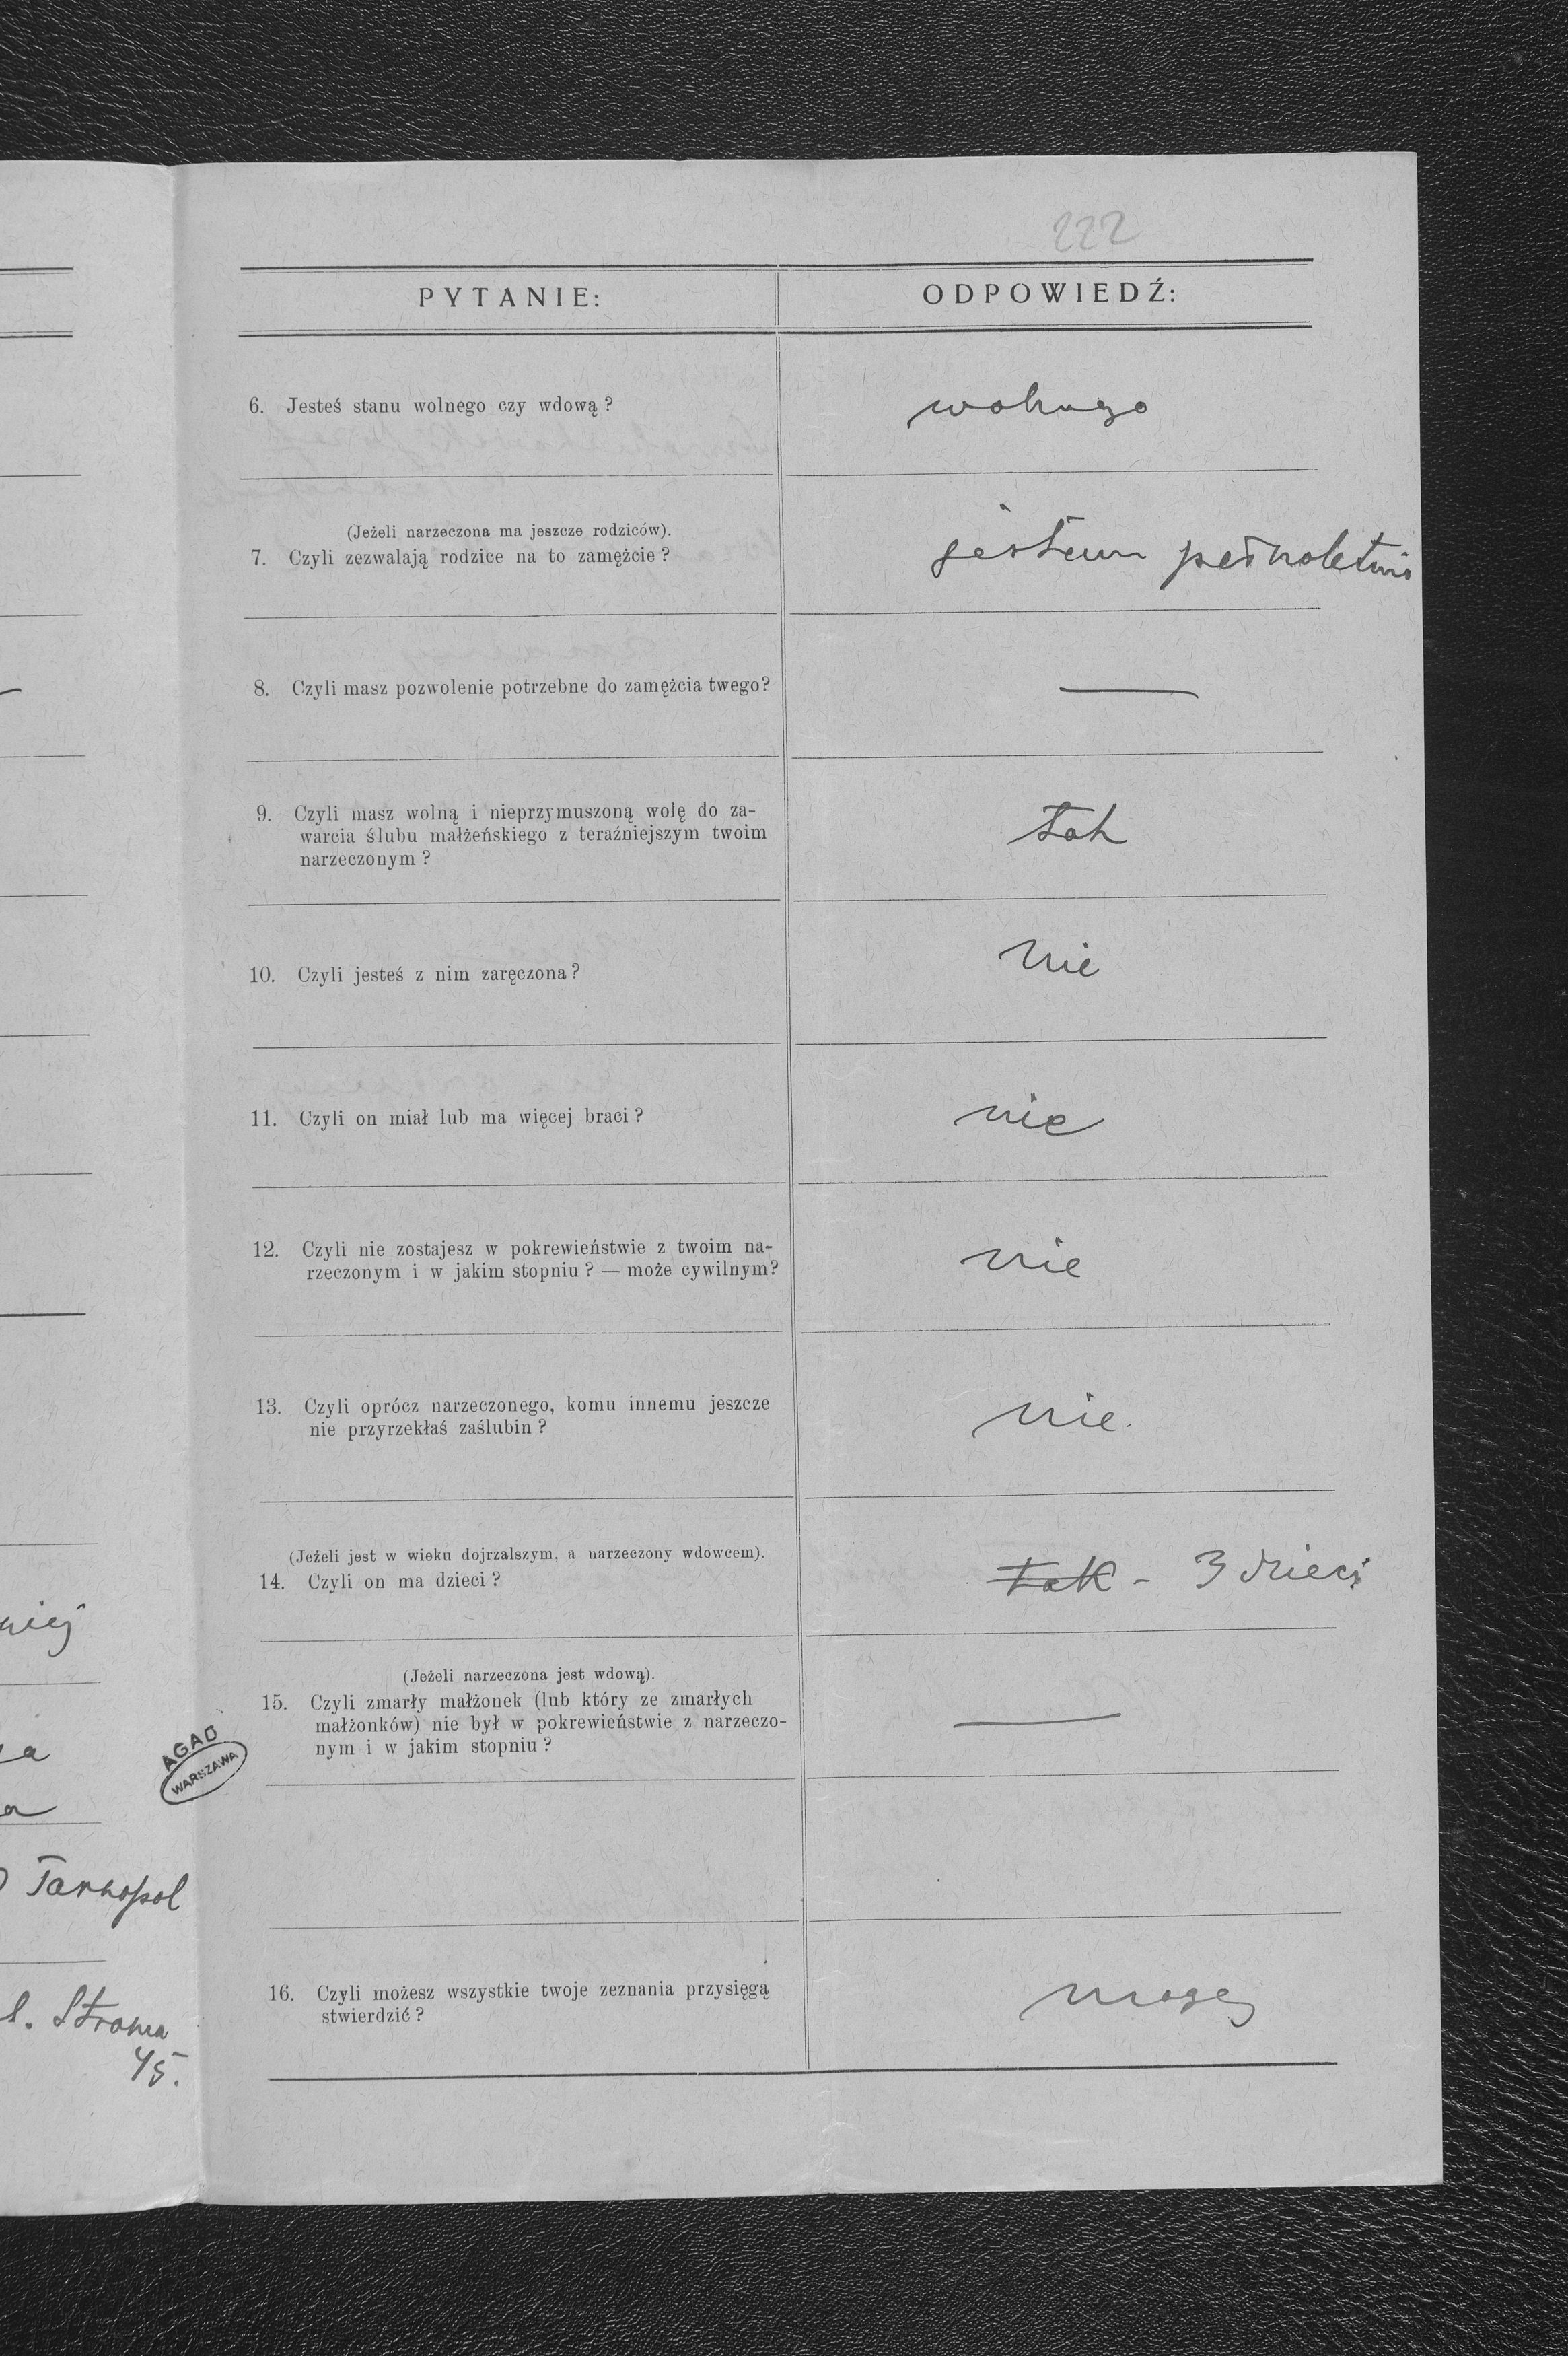 222
PYTANIE:
ODPOWIEDŹ:
6. Jesteś stanu wolnego czy wdową?
wolnego
(Jeżeli narzeczona ma jeszcze rodziców).
7. Czyli zezwalają rodzice na to zamężcie?
jestem pełnoletnia
8. Czyli masz pozwolenie potrzebne do zamężcia twego?
—
9. Czyli masz wolną i nieprzymuszoną wolę do za-
warcia ślubu małżeńskiego z teraźniejszym twoim
narzeczonym?
tak
10. Czyli jesteś z nim zaręczona?
nie
11. Czyli on miał lub ma więcej braci?
nie
12. Czyli nie zostajesz w pokrewieństwie z twoim na-
rzeczonym i w jakim stopniu? — może cywilnym?
nie
13. Czyli oprócz narzeczonego, komu innemu jeszcze
nie przyrzekłaś zaślubin?
nie.
(Jeżeli jest w wieku dojrzalszym, a narzeczony wdowcem).
14. Czyli on ma dzieci?
tak - 3 dzieci
(Jeżeli narzeczona jest wdową).
15. Czyli zmarły małżonek (lub który ze zmarłych
małżonków) nie był w pokrewieństwie z narzeczo-
nym i w jakim stopniu?
—
16. Czyli możesz wszystkie twoje zeznania przysięgą
stwierdzić?
mogę
AGAD
WARSZAWA
Tarnopol
Stroma
45.